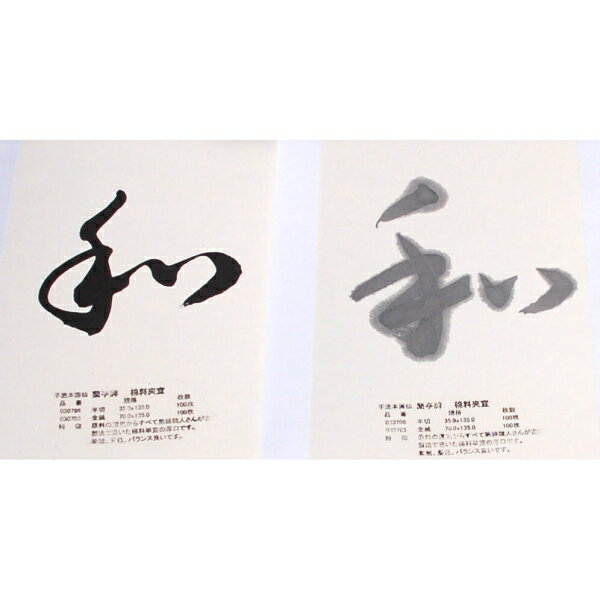 和
手漉本画仙 蘭亭牌 棉料夾宣
品番 規格 枚数
030706 半切 35.0x135.0 100枚
030705 全紙 70.0x135.0 100枚
特徴 原料の選別からすべて熟練職人さんが
製法で漉いた棉料単宣の厚口です。
墨色、バランス良いです。
和
手漉本画仙 蘭亭牌 棉料夾宣
品番 規格 枚数
030706 半切 35.0x135.0 100枚
030705 全紙 70.0x135.0 100枚
特徴 原料の選別からすべて熟練職人さんが
製法で漉いた棉料単宣の厚口です。
墨色、バランス良いです。